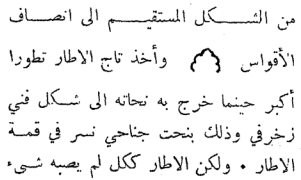 من الشكل المستقيم الى انصاف
الأقواس وأخذ تاج الاطار تطورا
أكبر حينما خرج به نحاته الى شكل فني
زخرفي وذلك بنحت جناحي نسر في قمة
الاطار . ولكن الاطار ككل لم يصبه شىء